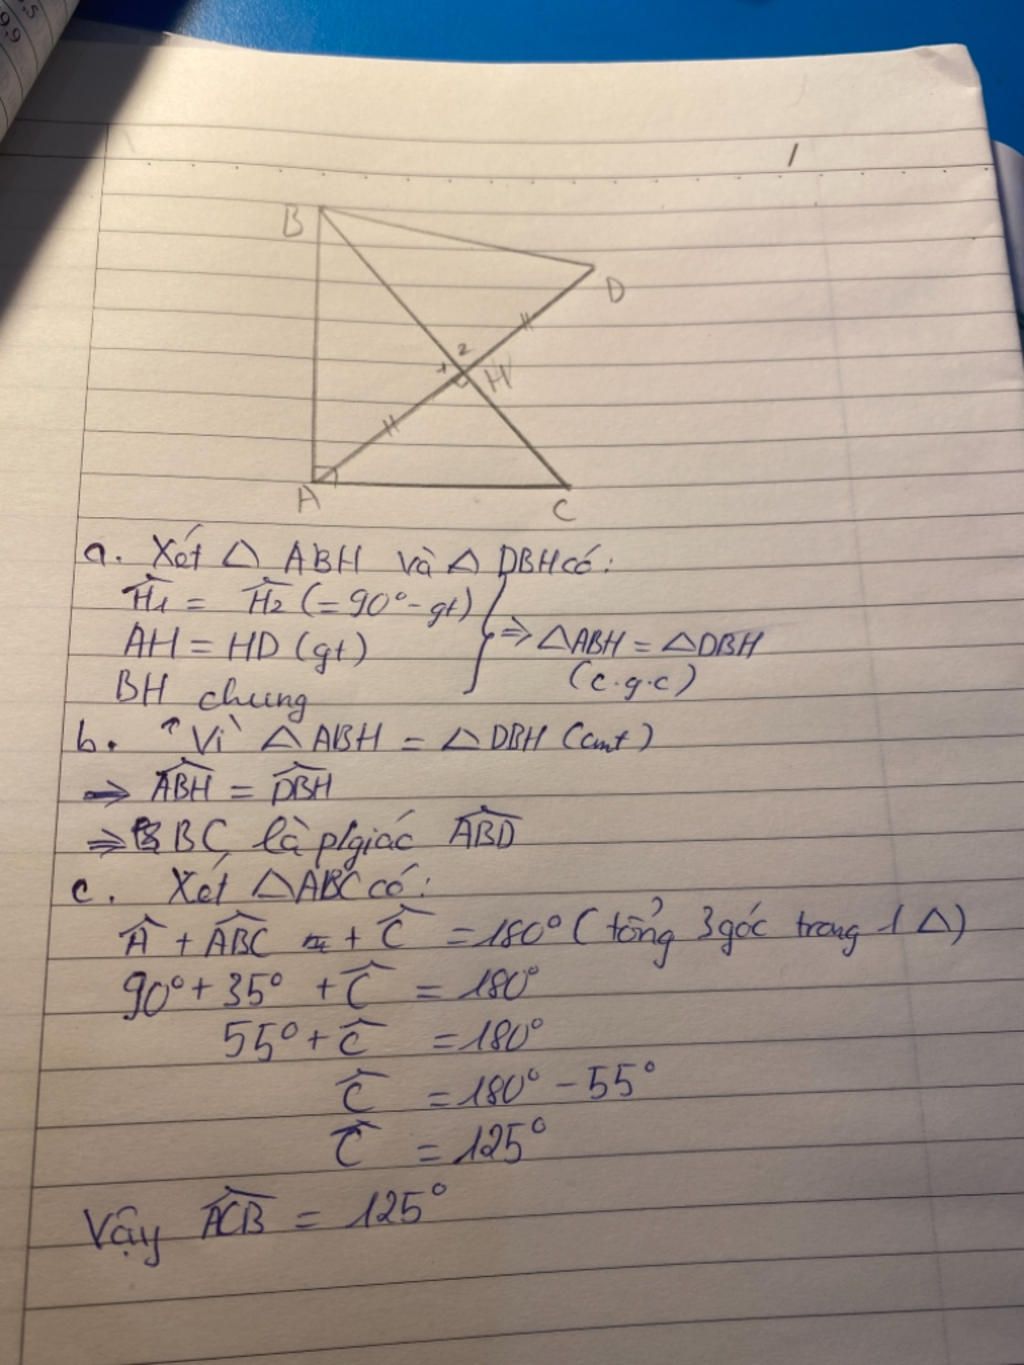 ,5
9,9
B
D
2
1
H
A
C
a. Xét △ ABH và △ DBH có:
Ĥ1 = Ĥ2 (= 90° - gt)
AH = HD (gt)
⇒ △ABH = △DBH
BH chung
(c.g.c)
b. Vì △ ABH = △ DBH (cmt)
⇒ ABH = DBH
⇒ BC là p/giác ABD
c. Xét △ABC có:
Â + ABC + Ĉ = 180° (tổng 3 góc trong 1 △)
90° + 35° + Ĉ = 180°
55° + Ĉ = 180°
Ĉ = 180° - 55°
Ĉ = 125°
Vậy ACB = 125°